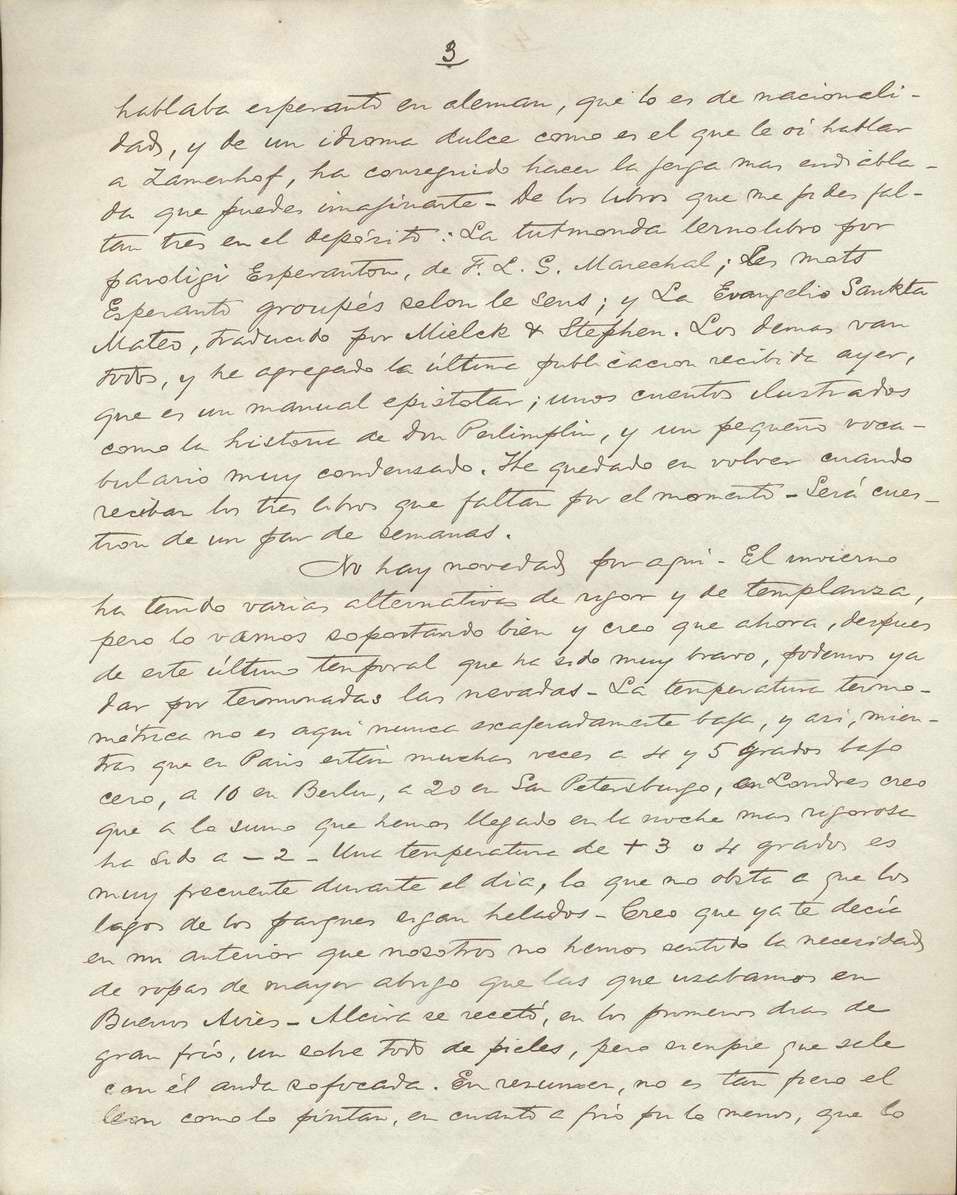 3
hablaba esperanto en aleman, que lo es de nacionali-
dad, y de un idioma dulce como es el que le oí hablar
a Zamenhof, ha conseguido hacer la jerga mas endiabla-
da que puedes imaginarte - De los libros que me pides fal-
tan tres en el depósito: La tutmonda lernolibro por
paroligi Esperanton, de F. L. G. Marechal; Les mots
Esperanto groupés selon le sens; y La Evangelio Sankta
Mateo, traducido por Mielck & Stephen. Los demas van
todos, y he agregado la última publicacion recibida ayer,
que es un manual epistolar; unos cuentos ilustrados
como la historia de Don Perlimplin, y un pequeño voca-
bulario muy condensado. He quedado en volver cuando
reciban los tres libros que faltan por el momento - Será cues-
tion de un par de semanas.
No hay novedad por aqui - El invierno
ha tenido varias alternativas de rigor y de templanza,
pero lo vamos soportando bien y creo que ahora, despues
de este último temporal que ha sido muy bravo, podemos ya
dar por terminadas las nevadas - La temperatura termo-
métrica no es aquí nunca exajeradamente baja, y asi, mien-
tras que en Paris están muchas veces a 4 y 5 grados bajo
cero, a 10 en Berlin, a 20 en San Petersburgo, en Londres creo
que a lo sumo que hemos llegado en la noche mas rigorosa
ha sido a - 2 - Una temperatura de + 3 o 4 grados es
muy frecuente durante el dia, lo que no obsta a que los
lagos de los parques sigan helados - Creo que ya te decía
en mi anterior que nosotros no hemos sentido la necesidad
de ropas de mayor abrigo que las que usabamos en
Buenos Aires - Alcira se recetó, en los primeros dias de
gran frío, un sobre todo de pieles, pero siempre que sale
con él anda sofocada. En resumen, no es tan fiero el
leon como lo pintan, en cuanto a frio por lo menos, que lo